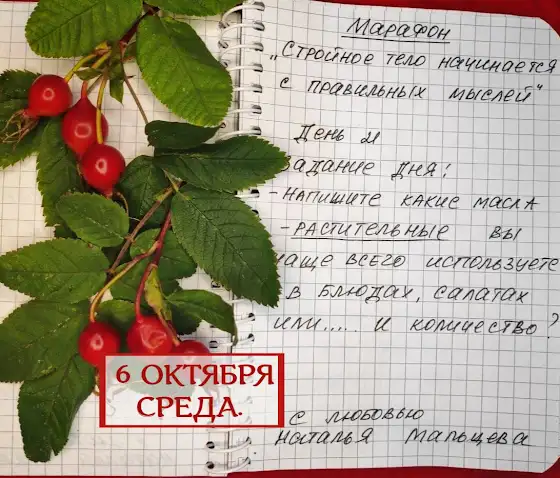 Марафон
„Стройное тело начинается
с правильных мыслей"
День 21
Задание дня:
- Напишите какие масла
- растительные вы
чаще всего используете
в блюдах, салатах
или..... и количество?
6 ОКТЯБРЯ
СРЕДА.
С любовью
Наталья Мальцева